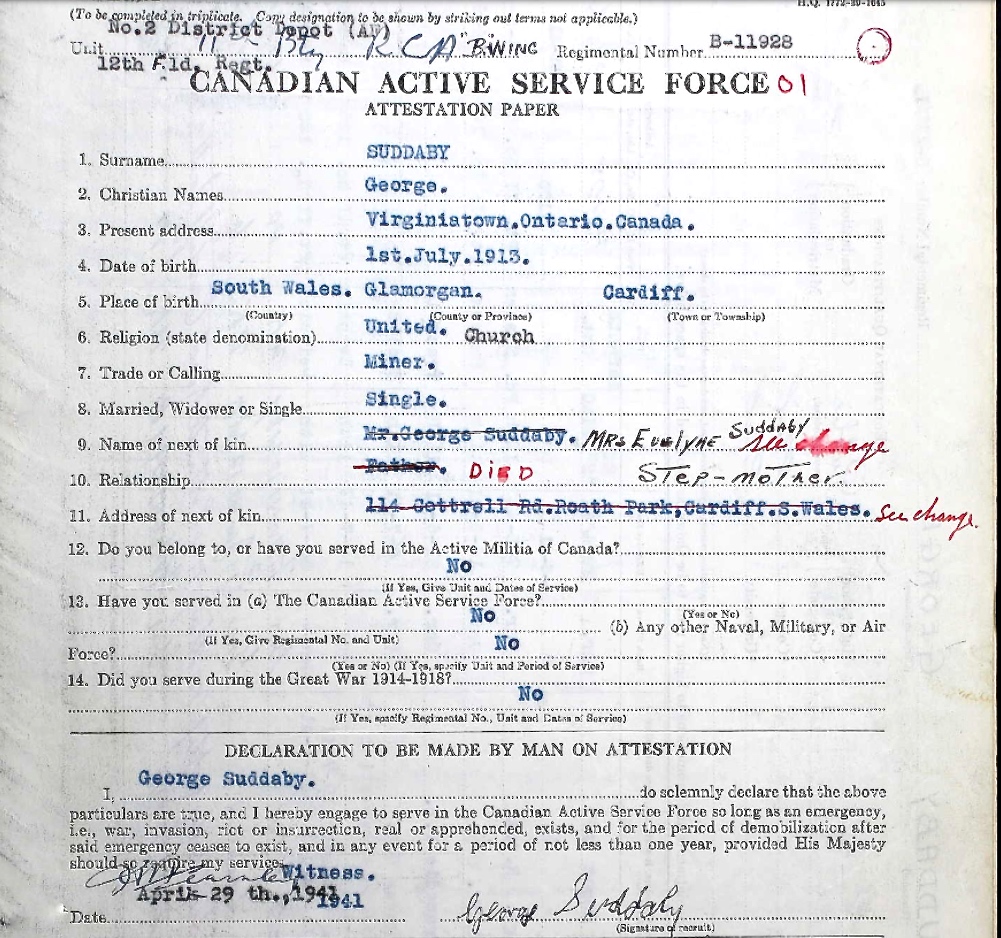 H.Q. 1772-39-1645
(To be completed in triplicate. Copy designation to be shown by striking out terms not applicable.)
No.2 District Depot (AF)
Unit R C A "B" WING Regimental Number B-11928
12th Fld. Regt.
CANADIAN ACTIVE SERVICE FORCE 01
ATTESTATION PAPER
1. Surname SUDDABY
2. Christian Names George.
3. Present address Virginiatown.Ontario.Canada.
4. Date of birth 1st.July.1913.
5. Place of birth South Wales. Glamorgan. Cardiff.
(Country) (County or Province) (Town or Township)
6. Religion (state denomination) United. Church
7. Trade or Calling Miner.
8. Married, Widower or Single Single.
9. Name of next of kin Mr.George Suddaby. MRS EVELYNE SUDDABY see change
10. Relationship Father. DIED STEP-MOTHER.
11. Address of next of kin 114 Cottrell Rd.Roath Park,Cardiff.S.Wales. See change.
12. Do you belong to, or have you served in the Active Militia of Canada?
No
(If Yes, Give Unit and Dates of Service)
13. Have you served in (a) The Canadian Active Service Force?
No (Yes or No)
(b) Any other Naval, Military, or Air
(If Yes, Give Regimental No. and Unit)
Force? No
(Yes or No) (If Yes, specify Unit and Period of Service)
14. Did you serve during the Great War 1914-1918?
No
(If Yes, specify Regimental No., Unit and Dates of Service)
DECLARATION TO BE MADE BY MAN ON ATTESTATION
George Suddaby.
I, do solemnly declare that the above
particulars are true, and I hereby engage to serve in the Canadian Active Service Force so long as an emergency,
i.e., war, invasion, riot or insurrection, real or apprehended, exists, and for the period of demobilization after
said emergency ceases to exist, and in any event for a period of not less than one year, provided His Majesty
should so require my services.
Witness.
April 29 th.,1941
1941
Date George Suddaby
(Signature of recruit)